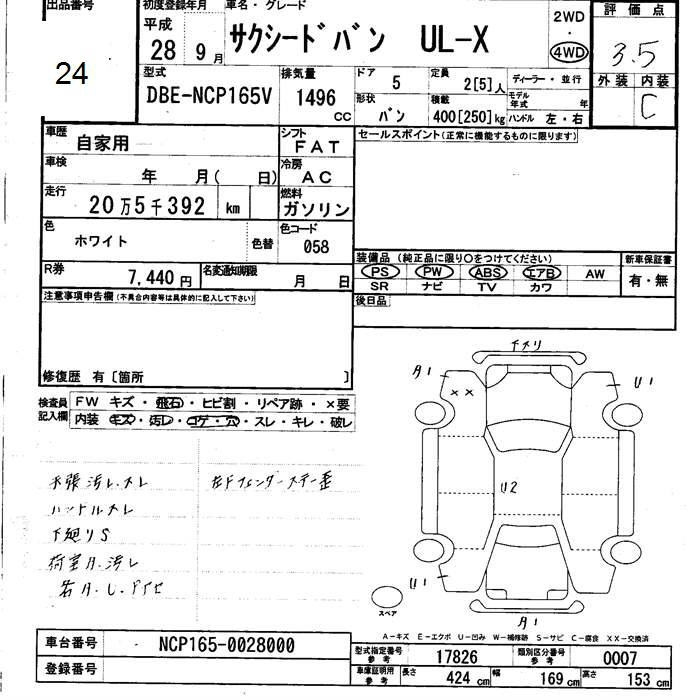 出品番号
24
初度登録年月 車名・グレード
平成 28 9月 サクシードバン UL-X
2WD ・ 4WD
評価点
3.5
外装 内装
C
型式 排気量 ドア 5 定員 2[5]人 ディーラー・並行
DBE-NCP165V 1496 cc 形状 バン 積載 400[250]kg モデル年式 年 ハンドル 左・右
車歴 自家用 シフト FAT セールスポイント(正常に機能するものに限ります)
車検 年 月( 日) 冷房 AC
走行 20万5千392 km 燃料 ガソリン
色 ホワイト 色替 色コード 058
装備品 (純正品に限り〇をつけてください) 新車保証書
R券 7,440円 名変通知期限 月 日
PS PW ABS エアB AW 有・無
SR ナビ TV カワ
注意事項申告欄(不具合内容等は具体的に記入して下さい) 後日品
修復歴 有〔箇所 〕
検査員記入欄 FW キズ・飛石・ヒビ割・リペア跡・×要
内装 キズ・汚レ・コゲ・穴・スレ・キレ・破レ
下メリ
A1 U1
××
U2
U1
A1
スペア
ハンドルスレ 左Fフェンダーステー歪
下廻りS
荷室A.汚レ
A-キズ E-エクボ U-凹み W-補修跡 S-サビ C-腐食 XX-交換済
車台番号 NCP165-0028000 型式指定番号 参考 17826 類別区分番号 参考 0007
登録番号 車庫証明用 参考 長さ 424 cm 幅 169 cm 高さ 153 cm